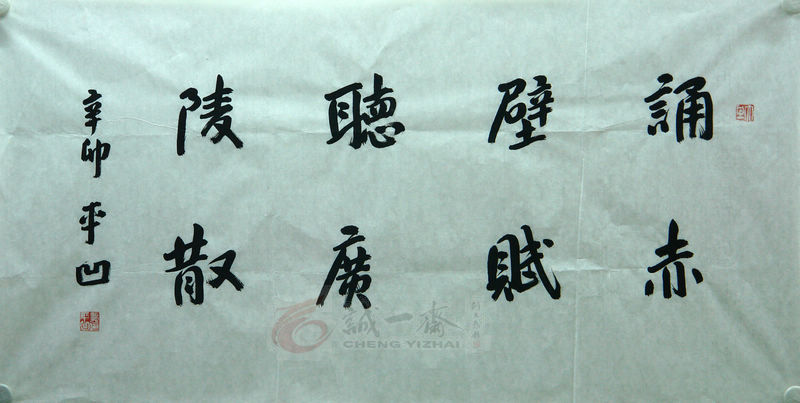 誦赤
壁賦
聽廣
陵散
辛卯平凹
誠一齋
CHENG YIZHAI